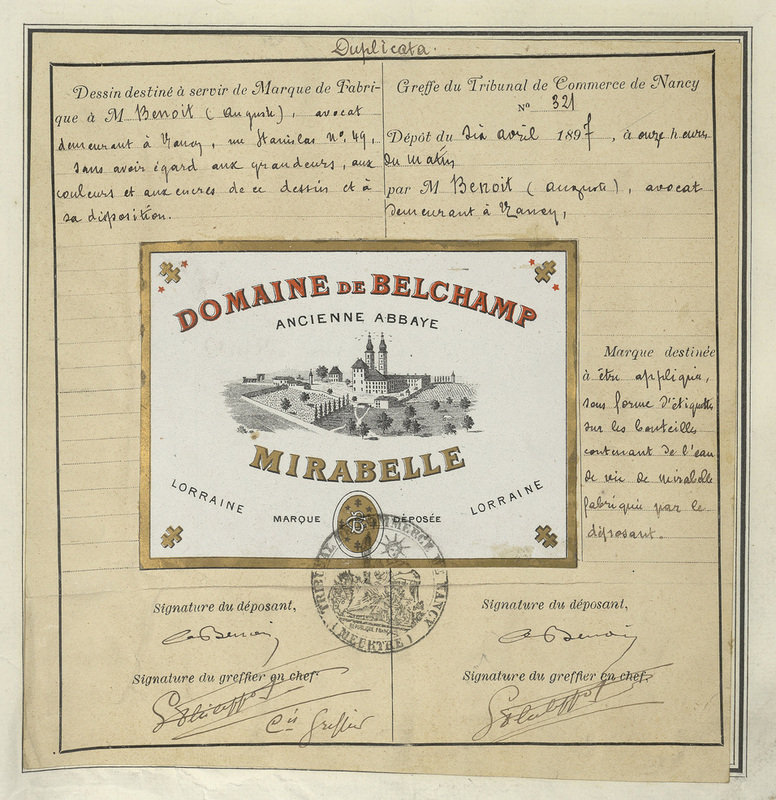 Duplicata.
Dessin destiné à servir de Marque de Fabri-
que à M Benoit (Auguste), avocat
demeurant à Nancy, rue Stanislas No. 49,
sans avoir égard aux grandeurs, aux
couleurs et aux encres de ce dessin et à
sa disposition.
Greffe du Tribunal de Commerce de Nancy
No 321
Dépôt du six avril 1897, à onze heures
du matin
par M Benoit (Auguste), avocat
demeurant à Nancy,
DOMAINE DE BELCHAMP
ANCIENNE ABBAYE
MIRABELLE
LORRAINE
MARQUE DÉPOSÉE
LORRAINE
Marque destinée
à être appliquée,
sous forme d'étiquettes
sur les bouteilles
contenant de l'eau
de vie de mirabelle
fabriquée par le
déposant.
TRIBUNAL DE COMMERCE DE NANCY
(MEURTHE)
RÉPUBLIQUE FRANÇAISE
Signature du déposant,
A Benoit
Signature du greffier en chef
Cis Greffier
Signature du déposant,
A Benoit
Signature du greffier en chef.